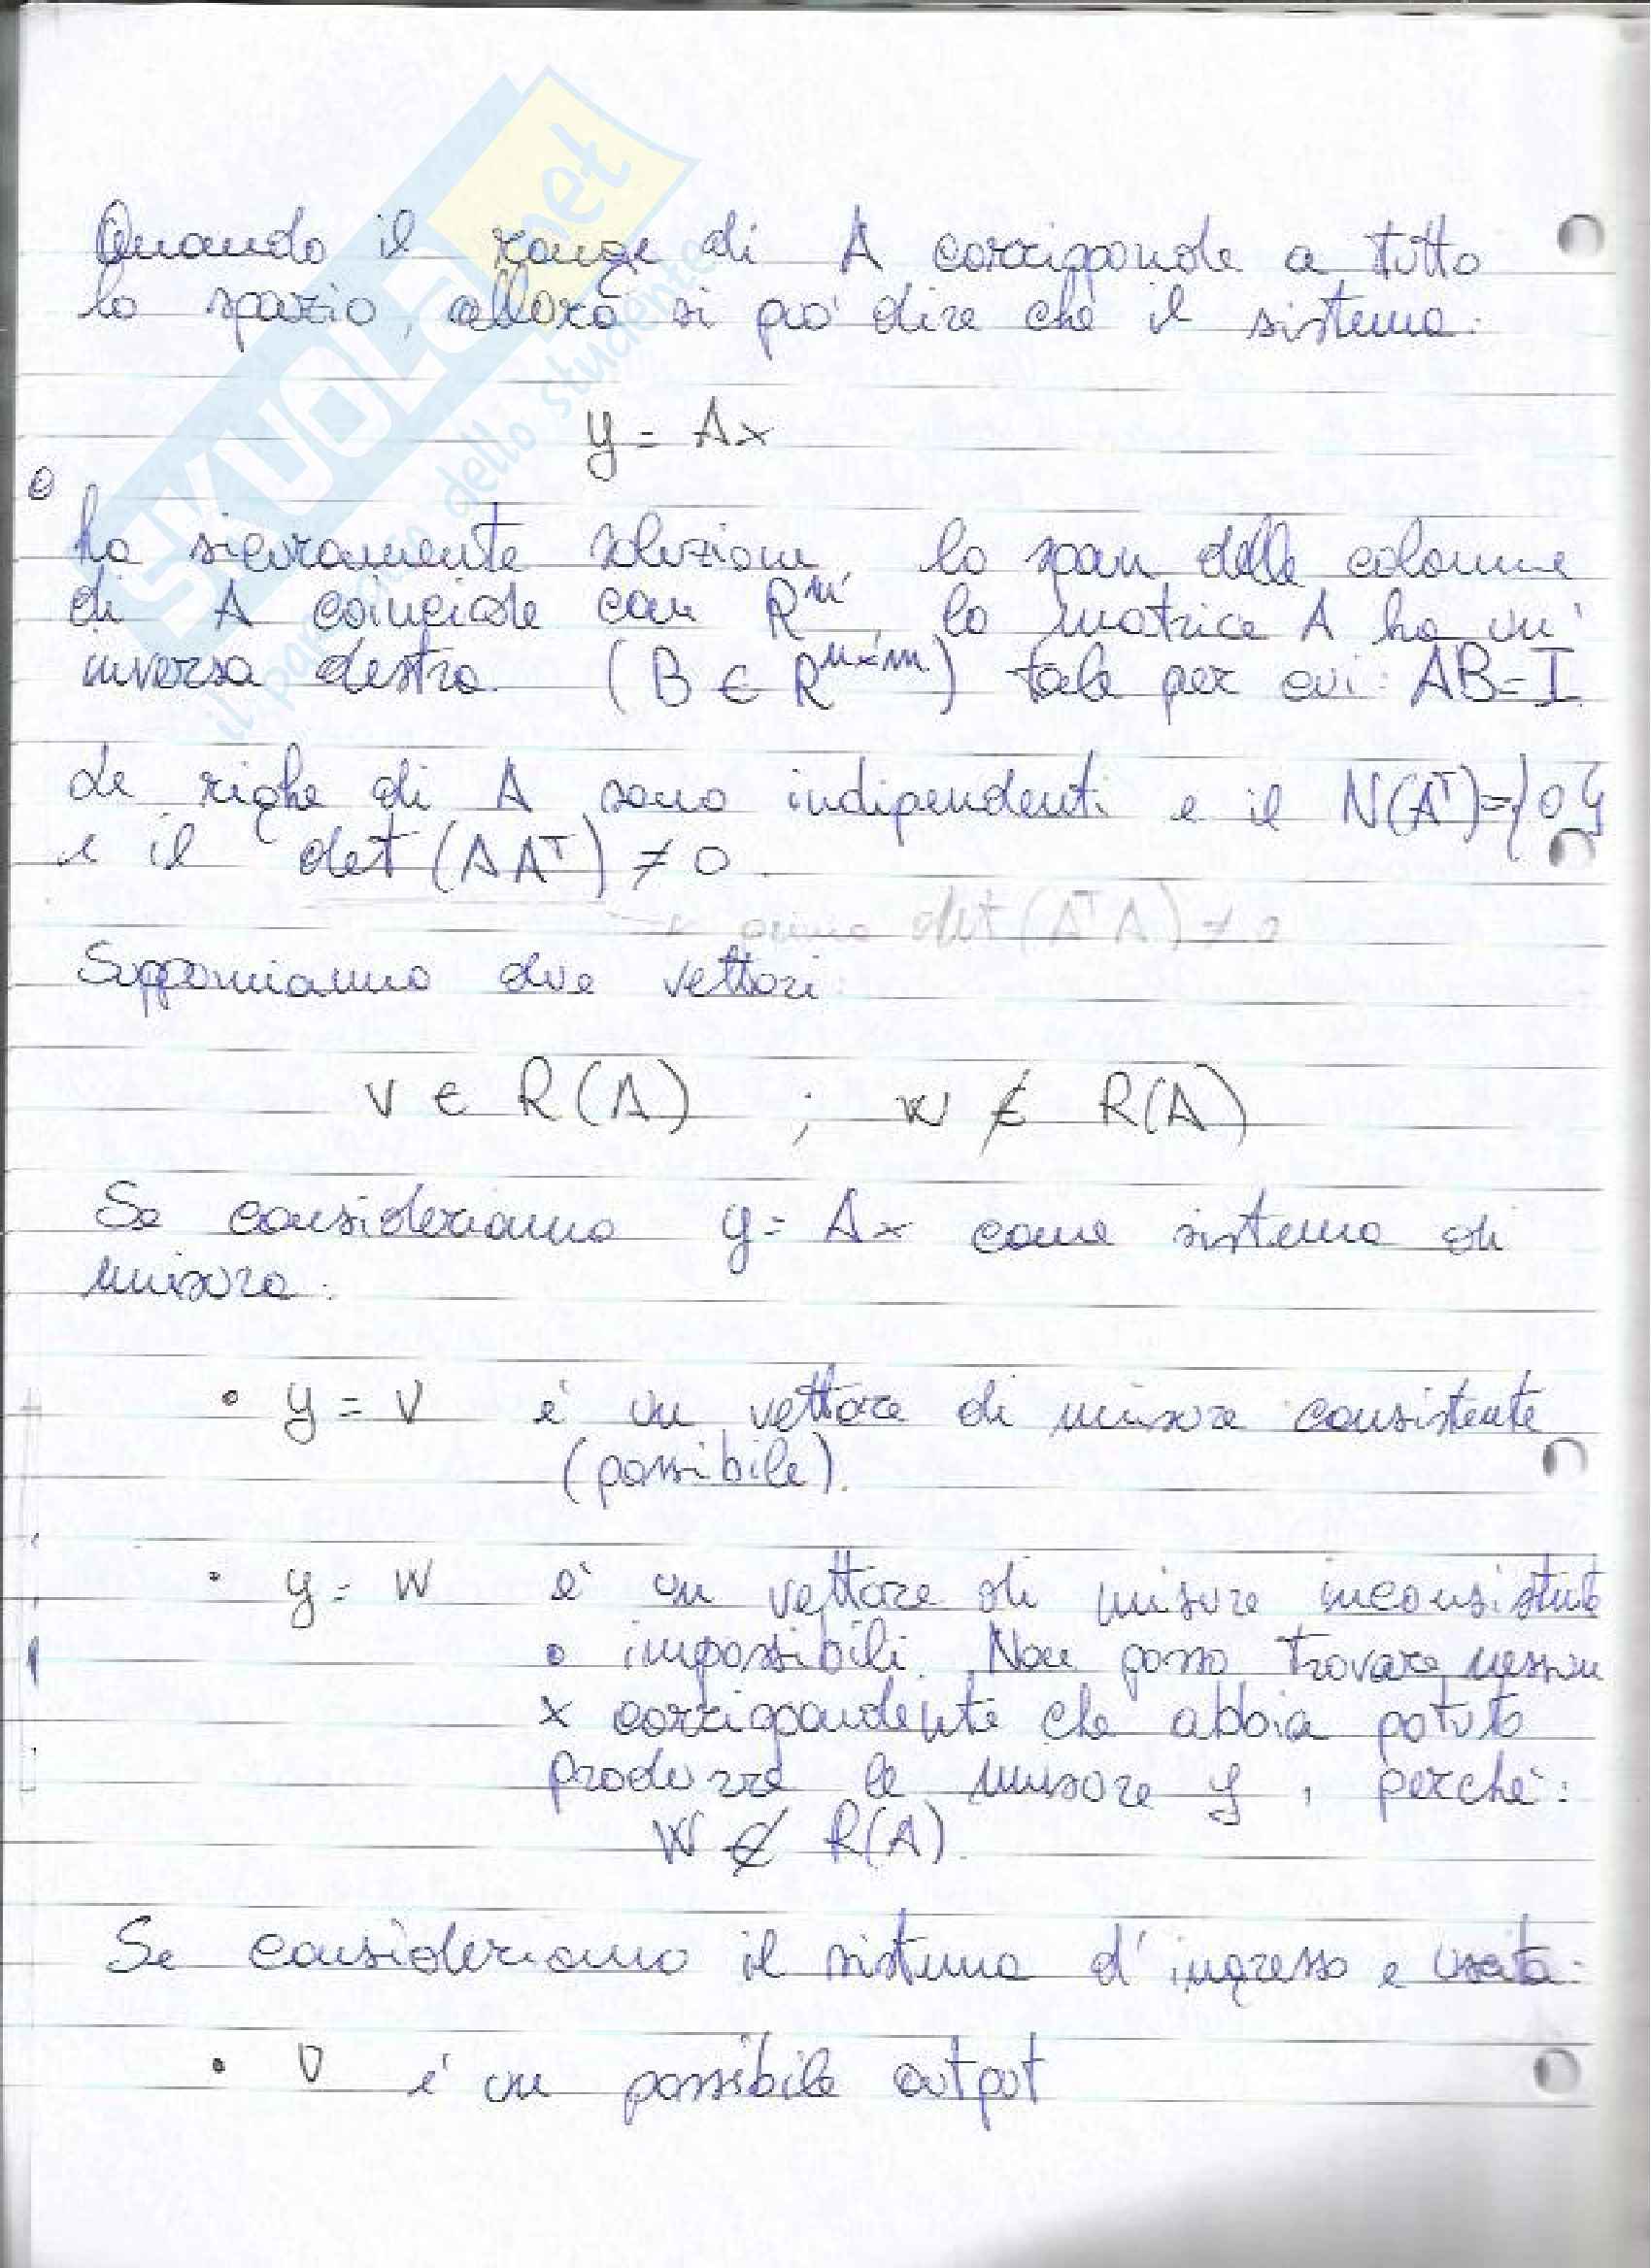 SKUOLA.net
il paradiso dello studente
Quando il range di A corrisponde a tutto
lo spazio, allora si può dire che il sistema:
y = Ax
ha sicuramente soluzioni, lo span delle colonne
di A coincide con R^m, la matrice A ha un'
inversa destra (B ∈ R^{n×m}) tale per cui: AB=I.
Le righe di A sono indipendenti e il N(A^T)={0}
e il det (AA^T) ≠ 0.
prima det(A^T A) ≠ 0
Supponiamo due vettori:
v ∈ R(A) ; w ∉ R(A)
Se consideriamo y = Ax come sistema di
misura:
• y = v è un vettore di misure consistente
(possibile).
• y = w è un vettore di misure inconsistente
o impossibili. Non posso trovare nessun
x corrispondente che abbia potuto
produrre le misure y, perchè:
w ∉ R(A).
Se consideriamo il sistema d'ingresso e uscita:
• v è un possibile output